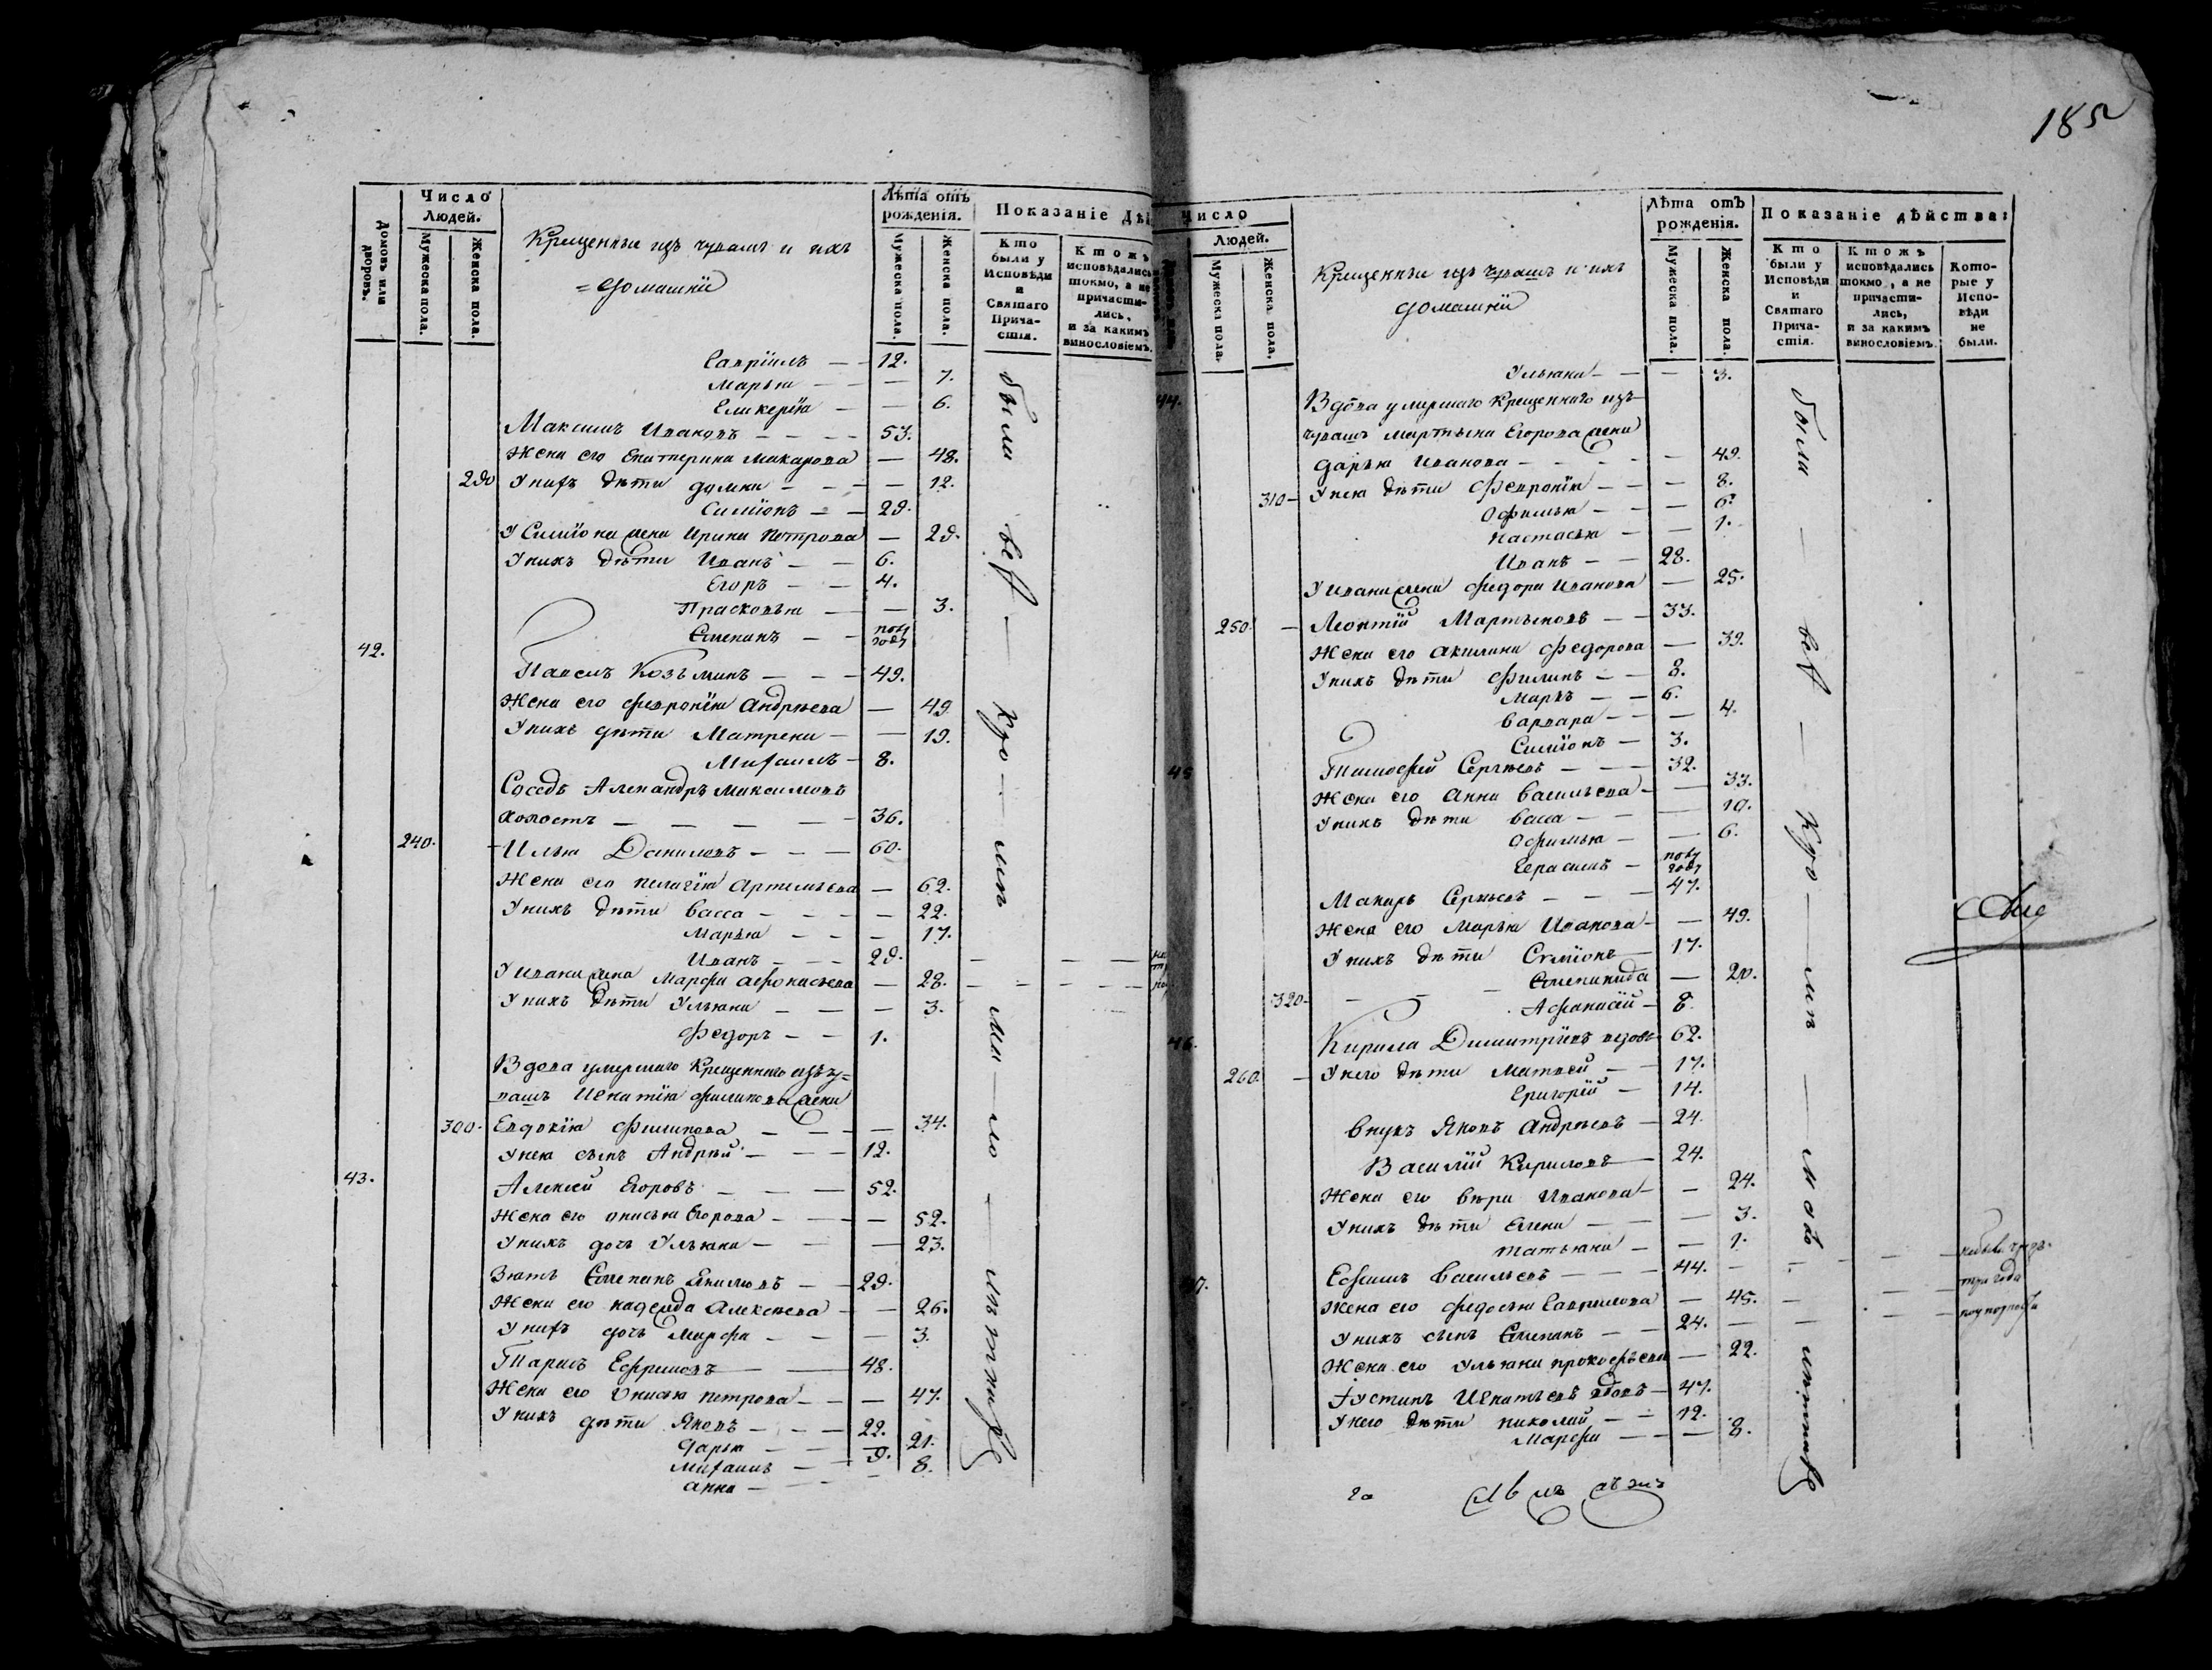 Число Людей.
Лѣта отъ рожденія.
Показаніе Дѣй
Домовъ или дворовъ.
Мужеска пола.
Женска пола.
Крещенныя изъ чувашъ и ихъ
= домашнии
Мужеска пола.
Женска пола.
Кто были у Исповѣди и Святаго Причастія.
Ктожъ исповѣдались токмо, а не причастились, и за какимъ винословіемъ.
Гавріилъ — 12.
Марья — 7.
Гликерія — 6.
Максимъ Ивановъ — 53.
Жена его Екатерина Макарова — 48.
290 У нихъ дѣти домна — 12.
Симіонъ — 29.
У Симіона жена Ирина Петрова — 29.
У нихъ дѣти Иванъ — 6.
Егоръ — 4.
Прасковья — 3.
Степанъ — полу году
42.
Павелъ Козьминъ — 49.
Жена его Февронія Андрѣева — 49.
У нихъ дѣти Матрена — 19.
Михаилъ — 8.
Соседъ Александръ Максимовъ
холостъ — 36.
240. Илья Даниловъ — 60.
Жена его пелагія Артемьева — 62.
У нихъ дѣти васса — 22.
Марья — 17.
Иванъ — 29.
У Ивана жена Марфа афонасьева — 28.
У нихъ дѣти Ульяна — 3.
Федоръ — 1.
Вдова умершаго Крещеннаго изъ чу=
вашъ Игнатія филипова жена
300. Евдокія Филипова — 34.
У нея сынъ Андрѣй — 12.
43. Алексей Егоровъ — 52.
Жена его анисья Егорова — 52.
У нихъ дочь Ульяна — 23.
Зять Степанъ — 29.
Жена его надежда Алексѣева — 26.
У нихъ дочь Марфа — 3.
Тарасъ Ефремовъ — 48.
Жена его Анисья петрова — 47.
У нихъ дѣти Яковъ — 22.
Дарья — 21.
Михаилъ — 9.
анна — 8.
были всѣ
185
Число
Людей.
Лѣта отъ рожденія.
Показаніе дѣйства:
Мужеска пола.
Женска пола.
Крещенныя изъ чувашъ и ихъ
домашнии
Мужеска пола.
Женска пола.
Кто были у Исповѣди и Святаго Причастія.
Ктожъ исповѣдались токмо, а не причастились, и за какимъ винословіемъ.
Которые у Исповѣди не были.
Ульяна — 3.
44. Вдова умершаго Крещеннаго изъ
чувашъ Мартына Егорова жена
дарья Иванова — 49.
310 — У нея дѣти Февронія — 8.
Офимья — 6.
Настасья — 1.
Иванъ — 28.
У Ивана жена федора Иванова — 25.
250. — Леонтій Мартыновъ — 33.
Жена его акилина Федорова — 39.
У нихъ дѣти Филипъ — 8.
Маркъ — 6.
варвара — 4.
Симіонъ — 3.
45 Тимофей Сергѣевъ — 32.
Жена его анна васильева — 33.
У нихъ дѣти васса — 10.
Офимья — 6.
Герасимъ — полу году
Макаръ Сергѣевъ — 47.
Жена его Марья Иванова — 49.
У нихъ дѣти Стміонъ — 17.
Степанида — 20.
320 — Афанасій — 8.
46. Кирила Димитріевъ вдовъ — 62.
260. — У него дѣти Матвей — 17.
Григорій — 14.
внукъ Яковъ Андрѣевъ — 24.
Василій Кириловъ — 24.
Жена его вѣра Иванова — 24.
У нихъ дѣти Елена — 3.
татьяна — 1.
7. Ефимъ васильевъ — 44.
три года
Жена его федосья Гаврилова — 45.
У нихъ сынъ Степанъ — 24.
Жена его Ульяна прокофьева — 22.
Густинъ Игнатьевъ вдовъ — 47.
У него дѣти николай — 12.
Марфа — 8.
были всѣ